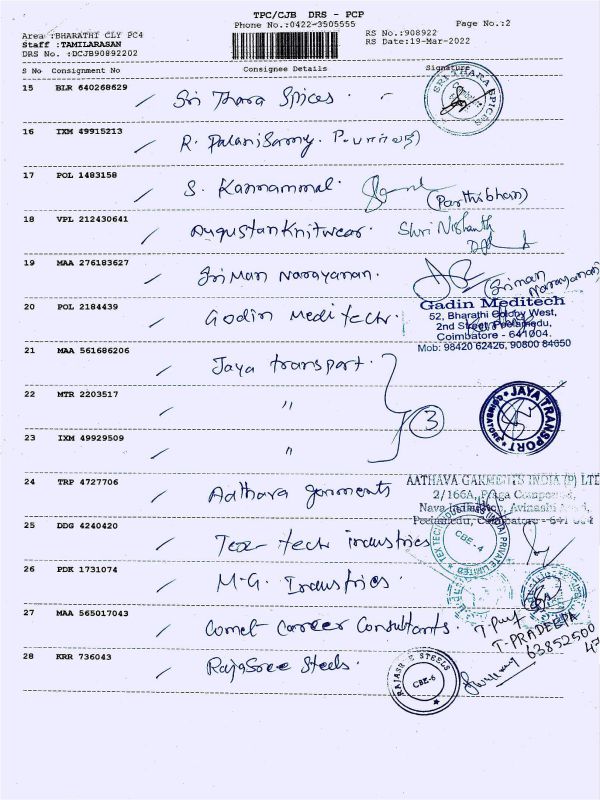 TPC/CJB DRS - PCP
Phone No.:0422-3505555
Page No.:2
Area :BHARATHI CLY PC4
Staff :TAMILARASAN
DRS No. :DCJB90892202
RS No.:908922
RS Date:19-Mar-2022
S No Consignment No Consignee Details Signature
15 BLR 640268629 Sri Thara Spices.
SRI THARA SPICES
16 IXM 49915213 R. Palanisamy.
17 POL 1483158 S. Kannammal. (Parthiban)
18 VPL 212430641 Augustan Knitwear. Shri Nishanth
19 MAA 276183627 Sriman Narayanan. (Sriman Narayanan)
20 POL 2184439 Godin Meditech.
Gadin Meditech
52, Bharathi Colony West,
2nd Street, Peelamedu,
Coimbatore - 641004.
Mob: 98420 62426, 90800 84650
21 MAA 561686206 Jaya transport.
22 MTR 2203517 "
3
JAYA TRANSPORT
COIMBATORE
23 IXM 49929509 "
24 TRP 4727706 Adthava garments
AATHAVA GARMENTS INDIA (P) LTD
2/166A,
Nava India Avinashi
Peelamedu, Coimbatore - 641 004
25 DDG 4240420 Tex tech industries
CBE-4
26 PDK 1731074 M.G. Industries.
27 MAA 565017043 Comet Career Consultants.
T-PRADEEPA
63852500
47
28 KRR 736043 RajaSree Steels.
RAJASREE STEELS
CBE-6